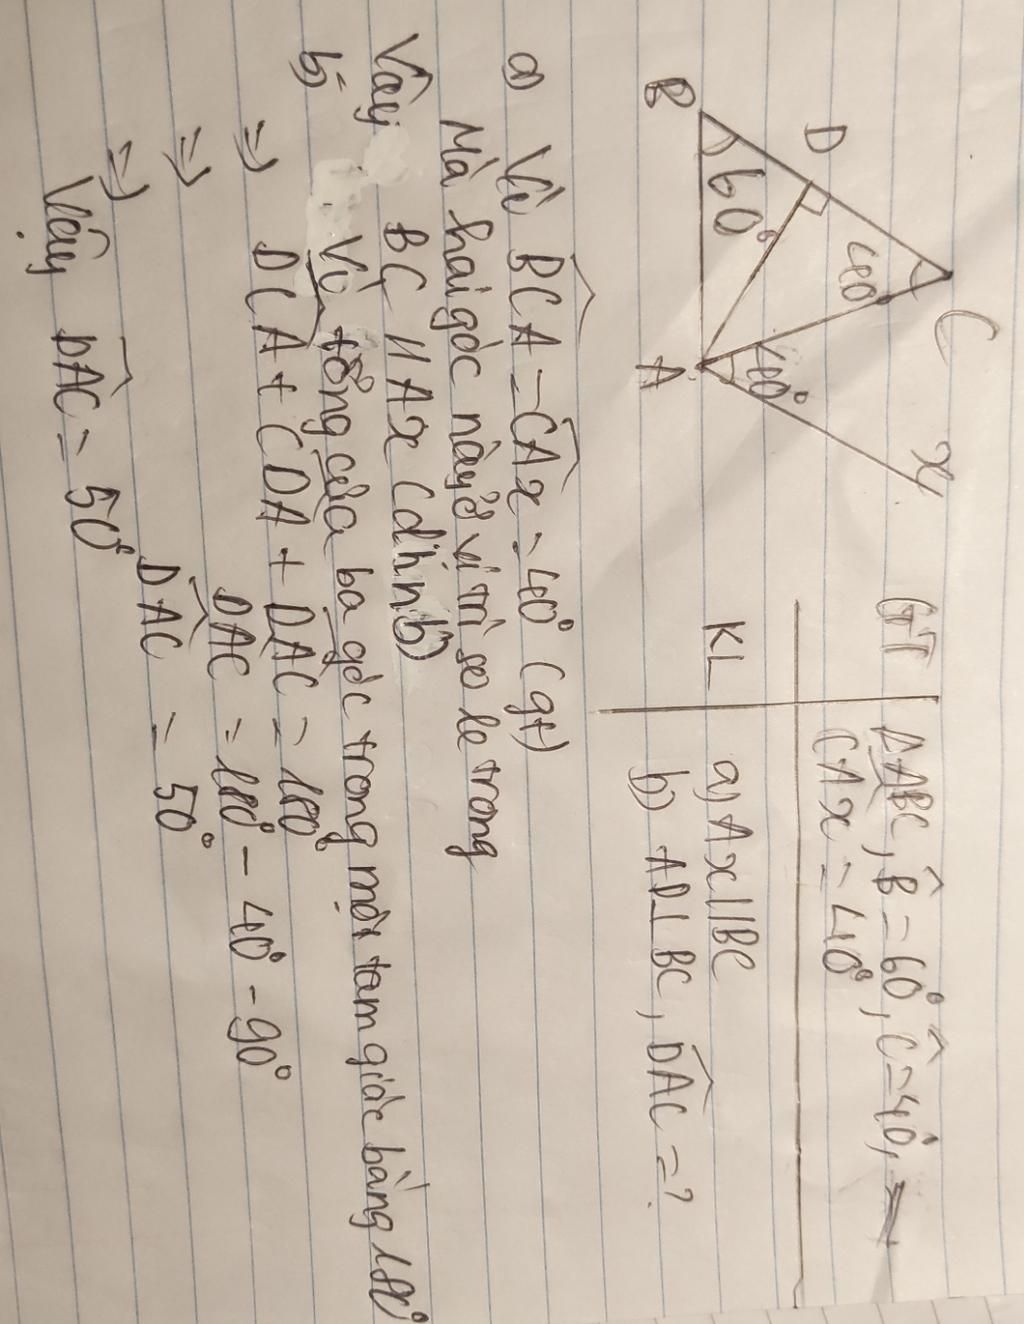 C
x
D
40°
40°
60°
B
A
GT
ΔABC, B̂ = 60°, Ĉ = 40°,
CÂx = 40°
KL
a) Ax // BC
b) AD ⊥ BC, DÂC = ?
a) Vì BĈA = CÂx = 40° (gt)
Mà hai góc này ở vị trí so le trong
Vậy BC // Ax (dhnb)
b) Vì tổng của ba góc trong một tam giác bằng 180°
=> DĈA + CD̂A + DÂC = 180°
=> DÂC = 180° - 40° - 90°
=> DÂC = 50°
Vậy DÂC = 50°